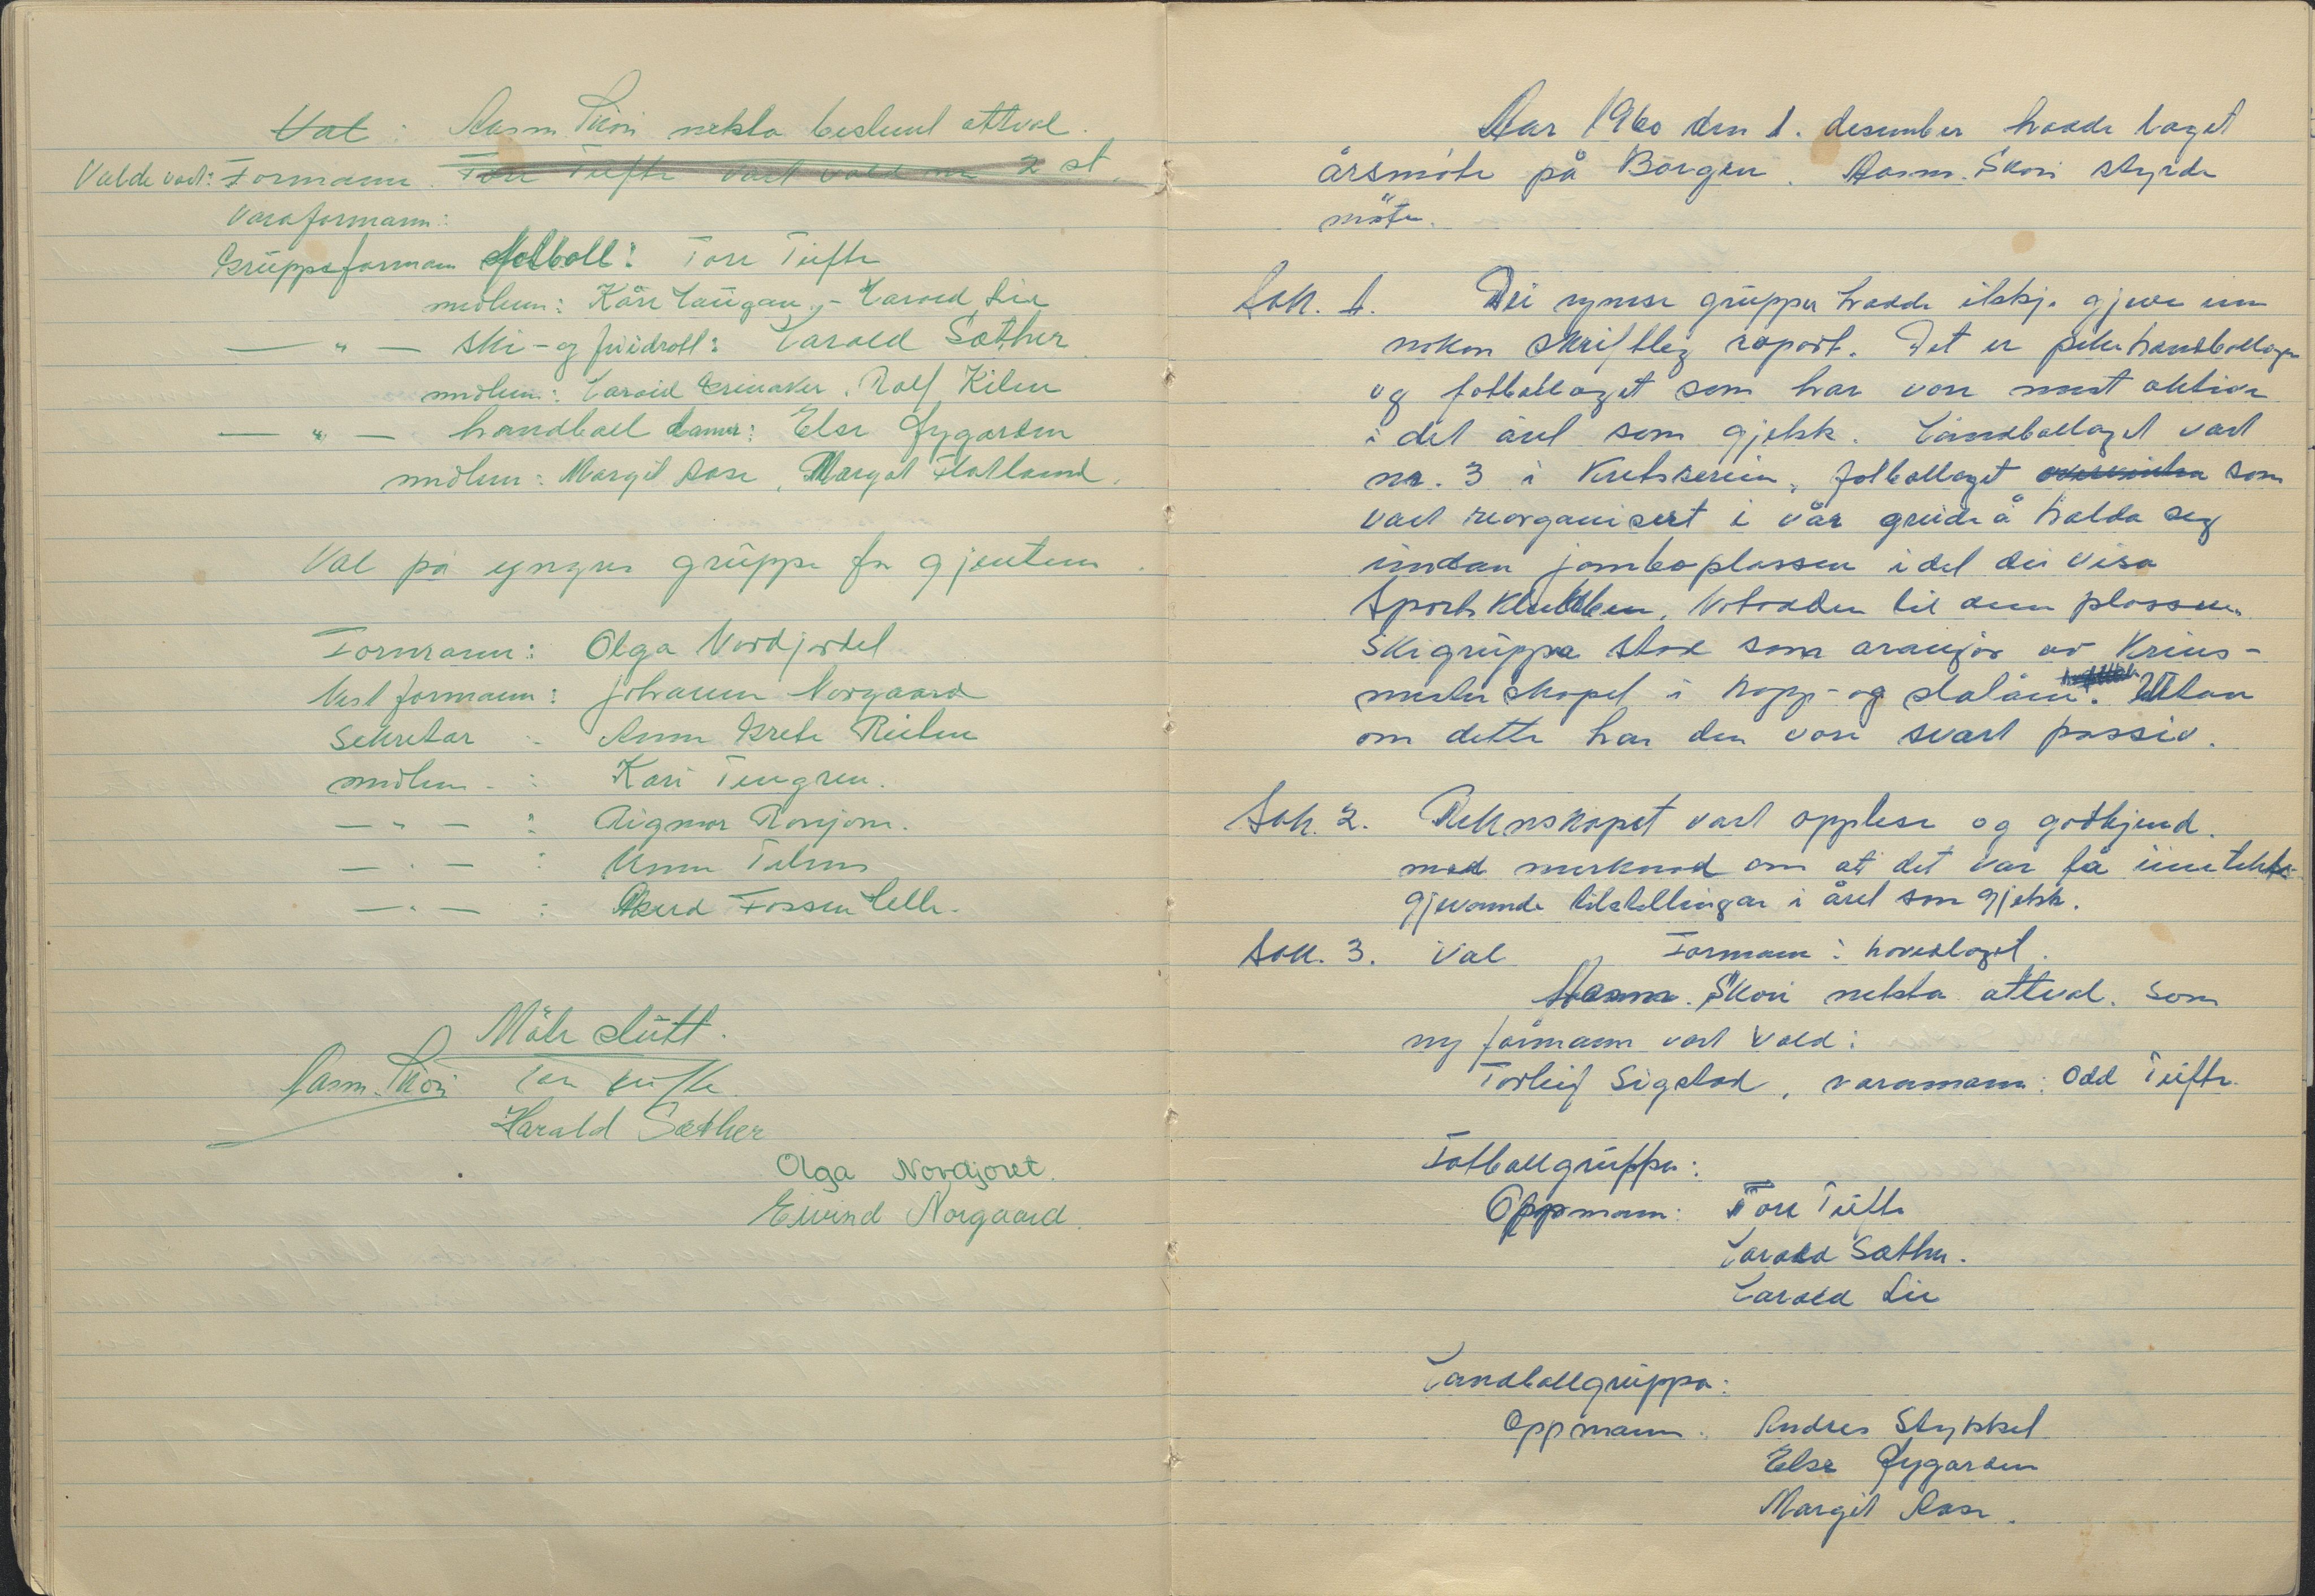 Val : Aasm. Skori nekta bestemt attval.
Valde vart: Formann. Tore Tufte vart vald med 2 st.
Varaformann:
Gruppeformann fotball: Tore Tufte
medlem: Kåre Haugan, - Harald Lie
— " — ski- og friidrott: Harald Sæther
medlem: Harald Grinaker, Rolf Kilen
— " — handball damer: Else Øygarden
medlem: Margit Aase, Margot Flatland.
Val på yngres gruppe for gjentene.
Formann: Olga Nordjordet
Nestformann: Johanne Norgaard
Sekretær - Anne Grete Reiten
medlem - : Kari Tengren.
— " — : Rigmor Ronjom.
— " — : Unni
— " — : Fossen Helle.
Møte slutt.
Aasm. Skori Tore Tufte
Harald Sæther
Olga Nordjoret.
Eivind Norgaard.
Aar 1960 den 1. desember hadde laget
årsmøte på Borgen. Aasm. Skori styrde
møte.
Sak. 1. Dei ymse grupper hadde ikkje gjeve inn
nokon skriftleg raport. Det er handballaget
og fotballaget som har vore mest aktive
i det året som gjekk. Handballaget vart
nr. 3 i Kretsserien, fotballaget som
vart reorganisert i vår greide å halda seg
undan jomboplassen idet dei visa
Sportsklubben, Notodden til denn plassen.
Skigruppa stod som aranjør av Krins-
meisterskapet i hopp- og slalåm. Utan
om dette har den vore svært passiv.
Sak. 2. Reknskapet vart opplese og godkjend.
med merknad om at det var få inntekts-
gjevande tilstellingar i året som gjekk.
Sak. 3. Val Formann i hovedlaget.
Aasm. Skori nekta attval. Som
ny formann vart vald:
Torleif Sigstad, varamann: Odd Tufte.
Fotballgruppa:
Oppmann: Tore Tufte
Harald Sæther.
Harald Lie
Handballgruppa:
Oppmann. Andres Stykket
Else Øygarden
Margit Aase.